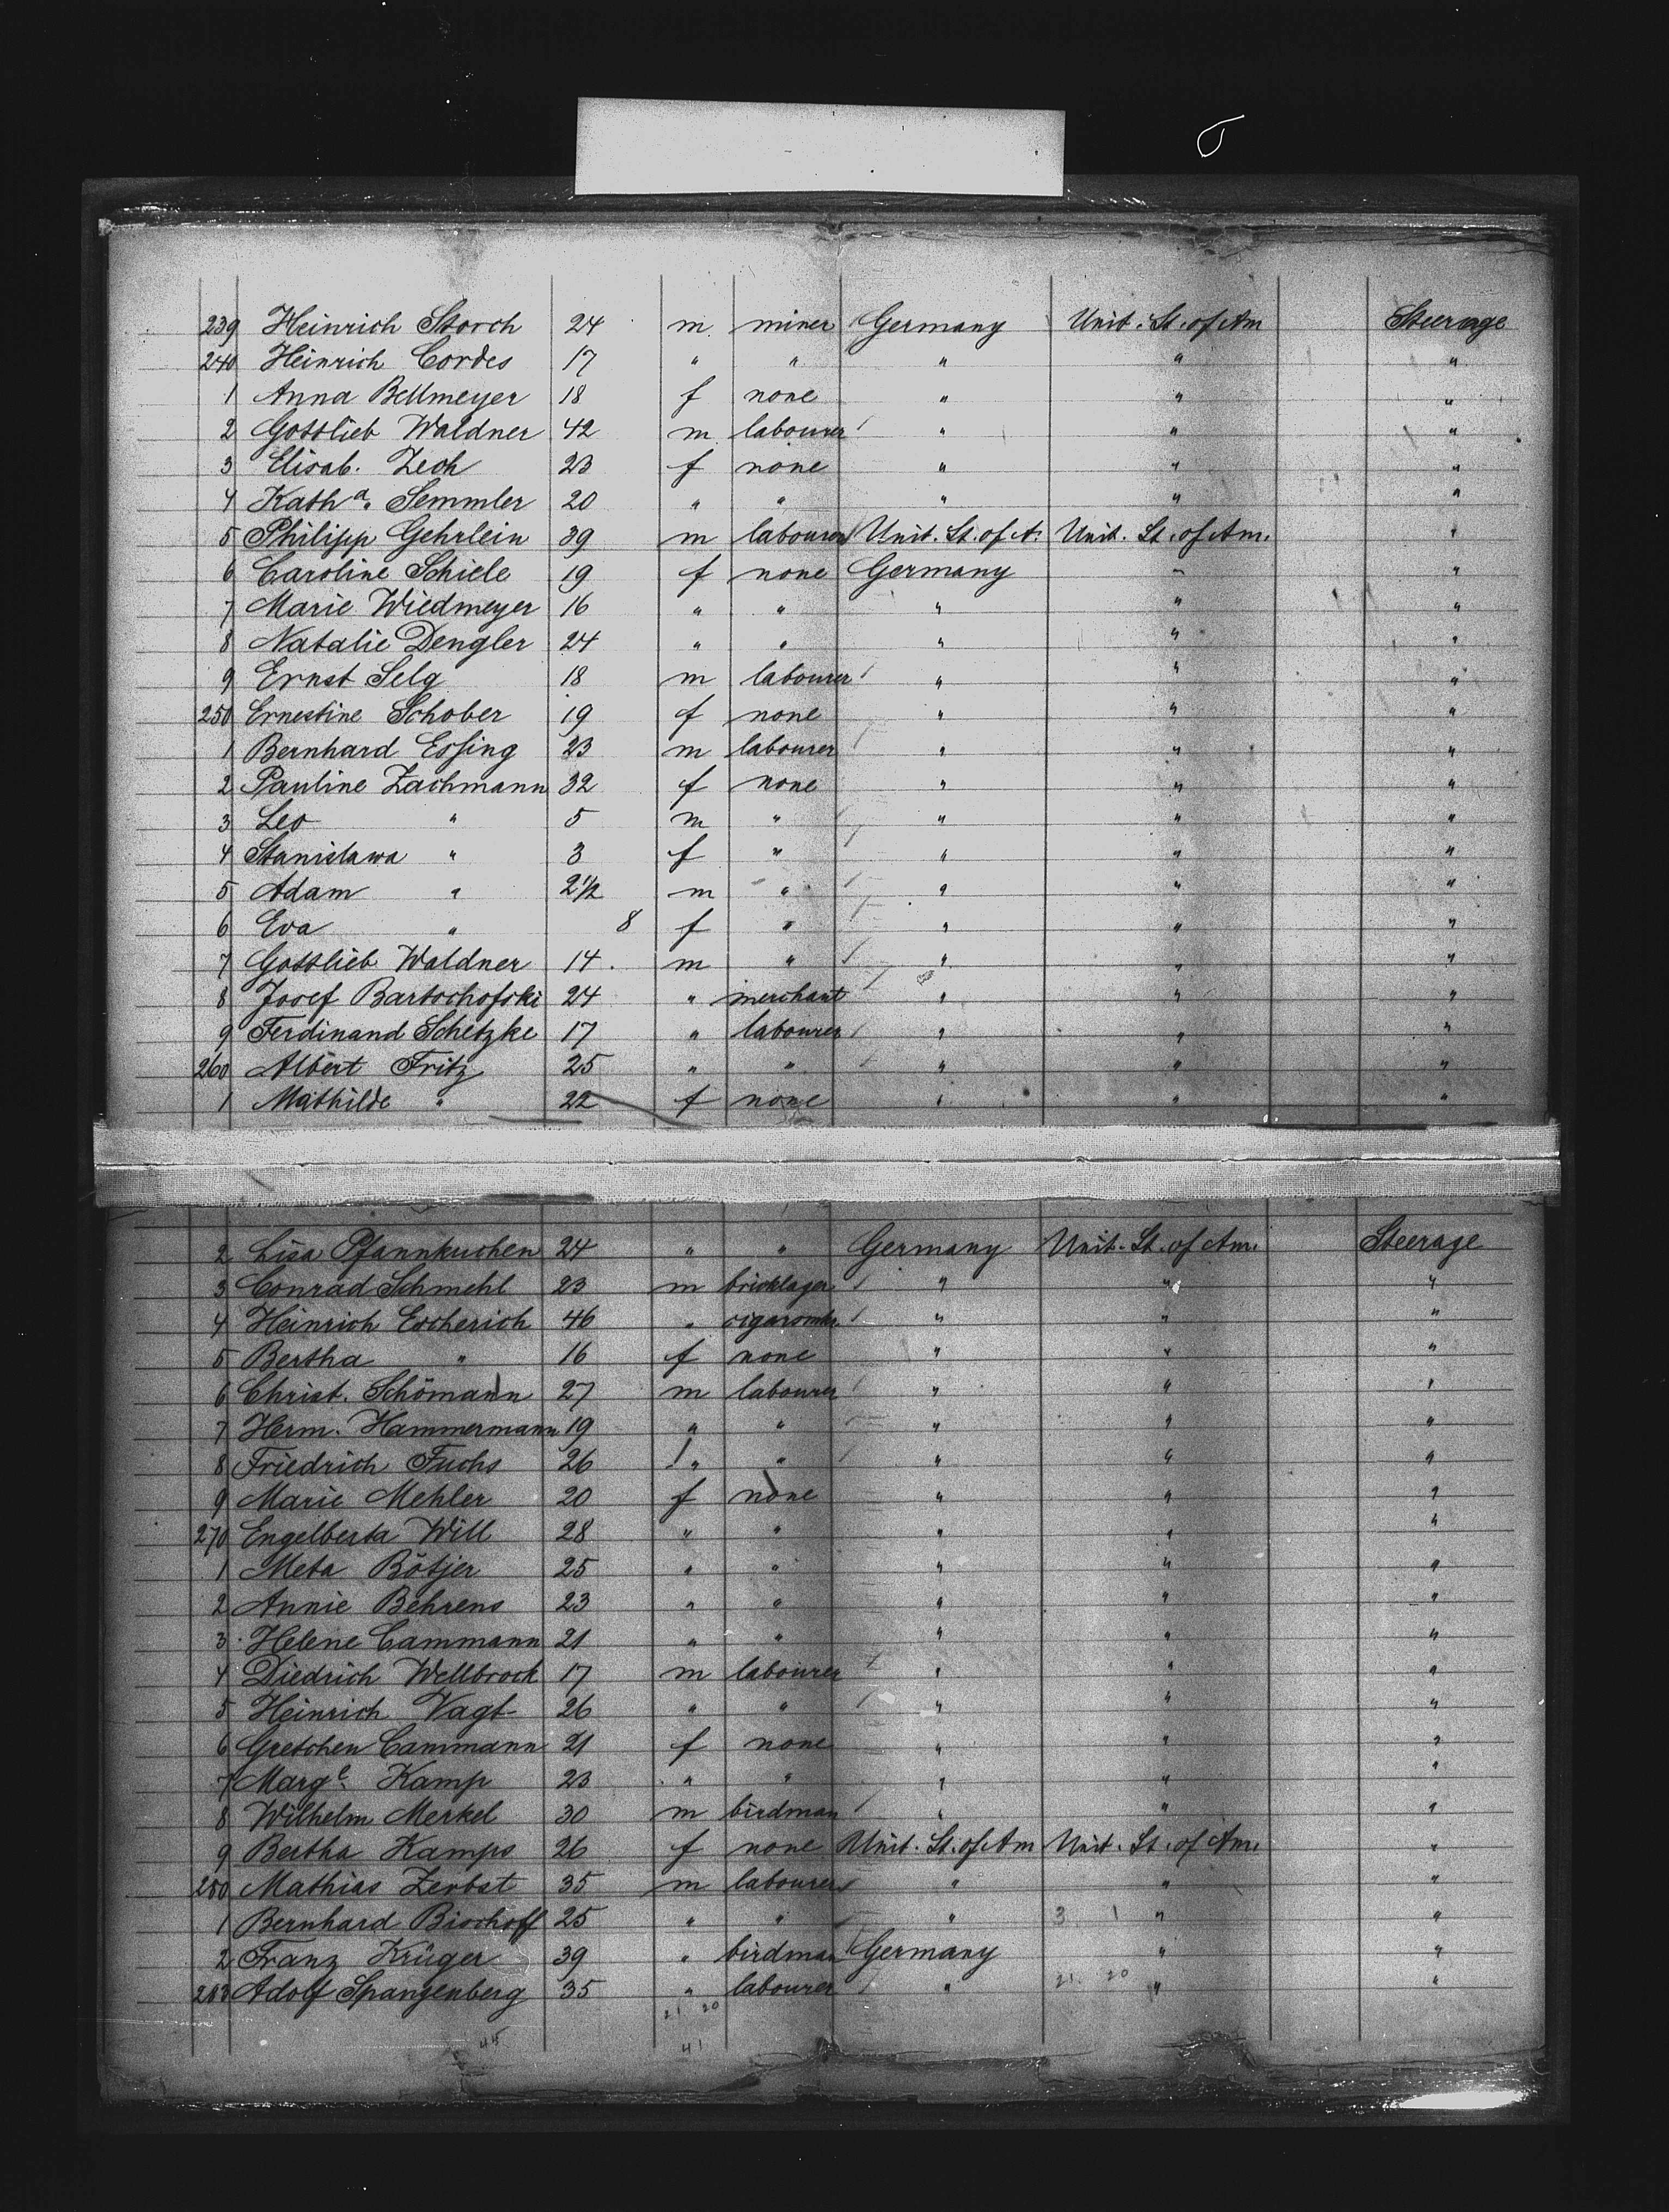 239 Heinrich Storch 24 m. miner Germany Unit. St. of Am Steerage
240 Heinrich Cordes 17 " " " " "
1 Anna Bellmeyer 18 f none " " "
2 Gottlieb Waldner 42 m. labourer " " "
3 Elisab. Zech 23 f none " " "
4 Kath a. Semmler 20 " " " " "
5 Philipp Gehrlein 39 m labourer Unit. St. of A. Unit. St. of Am. "
6 Caroline Schiele 19 f none Germany " "
7 Marie Wiedmeyer 16 " " " " "
8 Natalie Dengler 24 " " " " "
9 Ernst Selg 18 m labourer " " "
250 Ernestine Schober 19 f none " " "
1 Bernhard Essing 23 m labourer " " "
2 Pauline Zachmann 32 f none " " "
3 Leo " 5 m " " " "
4 Stanislawa " 3 f " " " "
5 Adam " 2 1/2 m " " " "
6 Eva " 8 f " " " "
7 Gottlieb Waldner 14. m " " " "
8 Josef Bartschofski 24 " merchant " " "
9 Ferdinand Schetzke 17 " labourer " " "
260 Albert Fritz 25 " " " " "
1 Mathilde " 22 f none " " "
2 Lisa Pfannkuchen 24 " " Germany Unit. St. of Am. Steerage
3 Conrad Schmehl 23 m bricklager " " "
4 Heinrich Escherich 46 " cigaromkr. " " "
5 Bertha " 16 f none " " "
6 Christ. Schömann 27 m labourer " " "
7 Herm. Hammermann 19 " " " " "
8 Friedrich Fuchs 26 " " " " "
9 Marie Mehler 20 f none " " "
270 Engelberta Will 28 " " " " "
1 Meta Bötjer 25 " " " " "
2 Annie Behrens 23 " " " " "
3 Helene Cammann 21 " " " " "
4 Diedrich Wellbrock 17 m labourer " " "
5 Heinrich Vagt 26 " " " " "
6 Gretchen Cammann 21 f none " " "
7 Marg e. Kamp 23 " " " " "
8 Wilhelm Merkel 30 m birdman " " "
9 Bertha Kamps 26 f none Unit. St. of Am Unit. St. of Am. "
280 Mathias Zerbst 35 m labourer " " "
1 Bernhard Bischoff 25 " " " 3 1 " "
2 Franz Krüger 39 " birdman Germany " "
283 Adolf Spangenberg 35 " labourer " 21. 20 " "
21 20
45 41